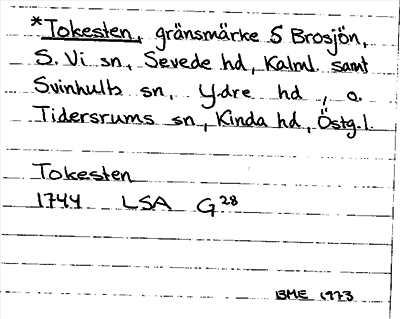 *Tokesten, gränsmärke S Brosjön,
S. Vi sn, Sevede hd, Kalml. samt
Svinhults sn, Ydre hd, o.
Tidersrums sn, Kinda hd, Östg.l.
Tokesten
1744 LSA G28
BME 1973